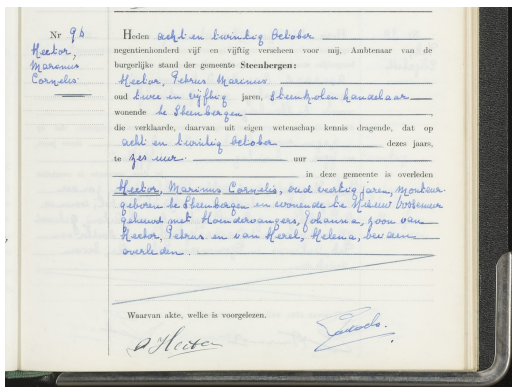 Nr 96
Hector,
Marinus
Cornelis
Heden acht en twintig October
negentienhonderd vijf en vijftig verscheen voor mij, Ambtenaar van de
burgerlijke stand der gemeente Steenbergen:
Hector, Petrus Marinus
oud twee en vijftig jaren, steenkolenhandelaar
wonende te Steenbergen
die verklaarde, daarvan uit eigen wetenschap kennis dragende, dat op
acht en twintig October dezes jaars,
te zes uur uur
in deze gemeente is overleden
Hector, Marinus Cornelis, oud veertig jaren, monteur
geboren te Steenbergen en wonende te Nieuw Vossemeer
gehuwd met Hondervangers, Johanna, zoon van
Hector, Petrus en van Herel, Helena, beiden
overleden.
Waarvan akte, welke is voorgelezen.
Hector